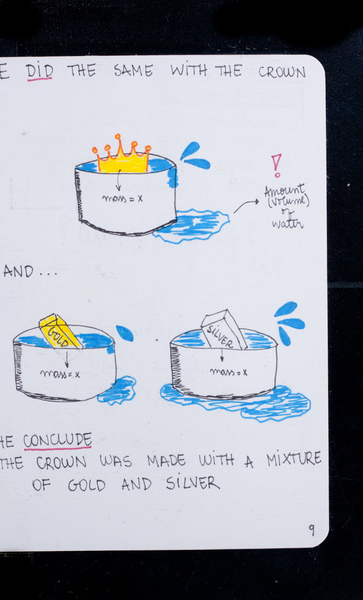 E DID THE SAME WITH THE CROWN
mass = x
!
Amount
(volume)
of
water
AND...
GOLD
SILVER
mass = x
mass = x
HE CONCLUDE
THE CROWN WAS MADE WITH A MIXTURE
OF GOLD AND SILVER
9